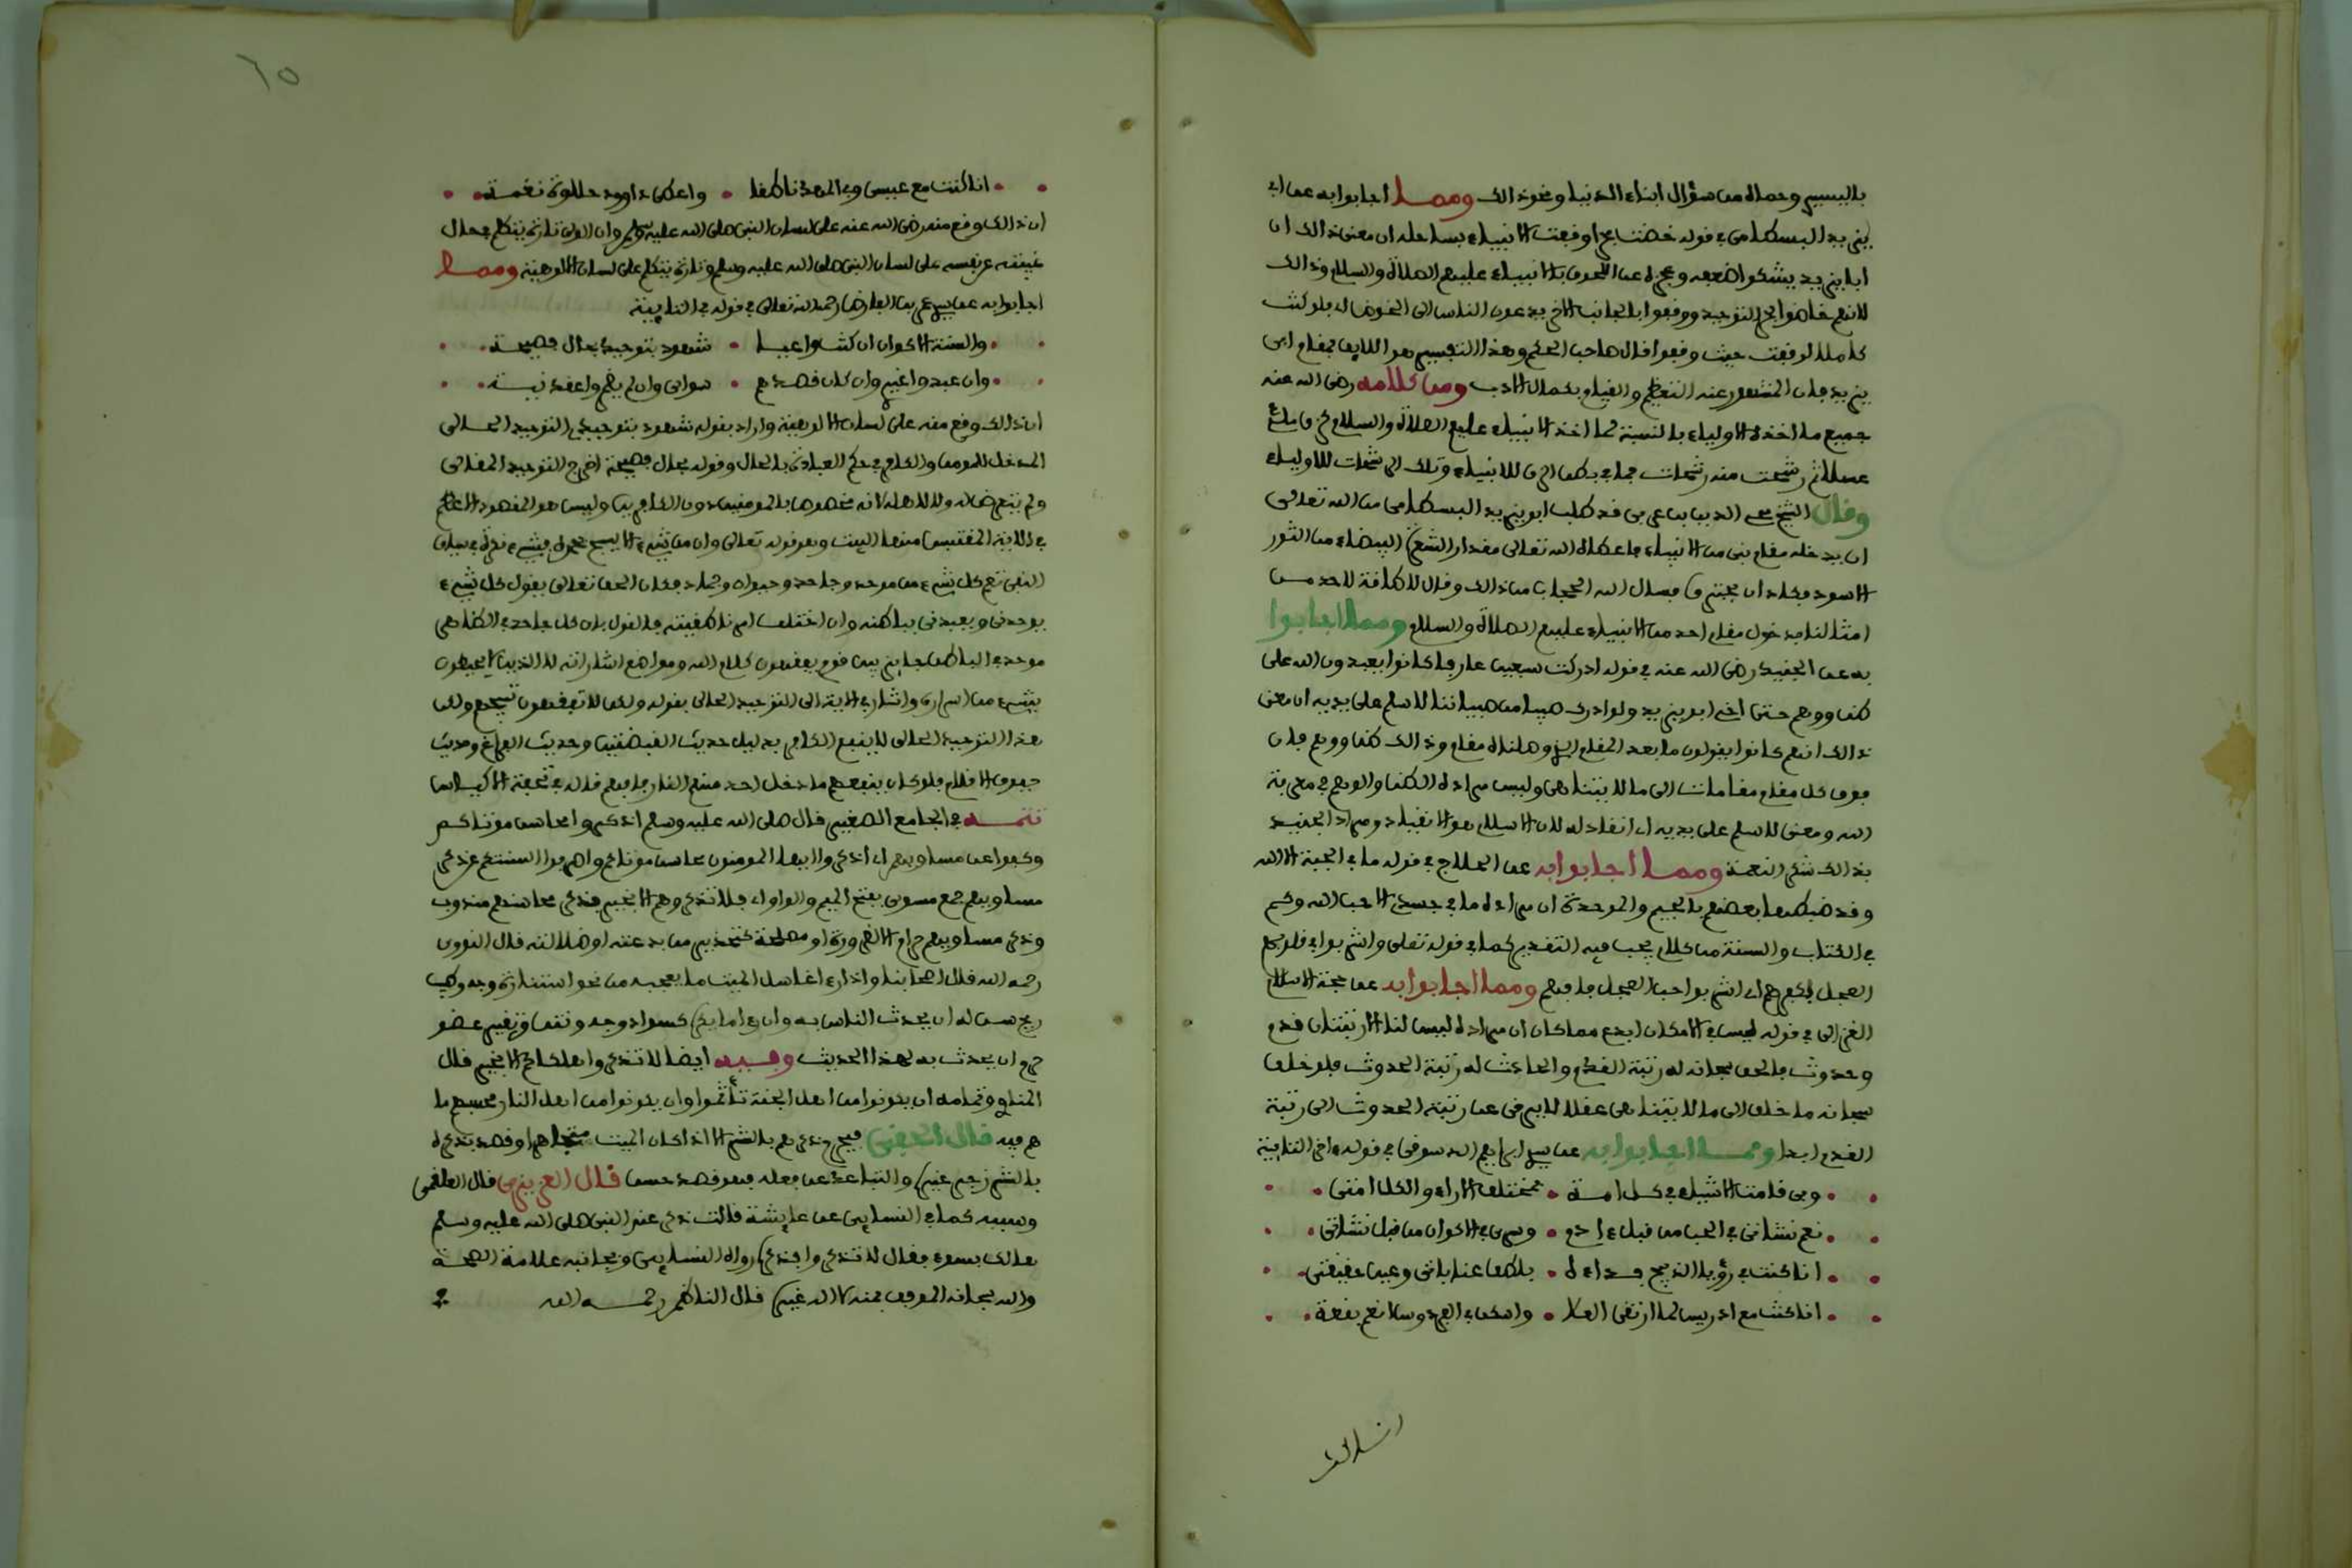 باليسير وحماه من سؤال ابناء الدنيا ونحو ذالك ومما اجابوا به عن ابي
يزيد البسطامي في قوله خضت بحرا وقفت الانبياء بساحله ان معنى ذالك ان
ابا يزيد يشكوا ضعفه وعجزه عن اللحوق بالانبياء عليهم الصلاة والسلام وذالك
لانهم خاضوا بحر التوحيد ووقفوا بالجانب الاخر يدعون الناس الى الخوض اي فلو كنت
كاملا لوقفت حيث وقفوا قال صاحب الحكم وهذا التفسير هو اللايق بمقام ابي
يزيد فان المشهور عنه التعظيم والقيام بكمال الادب ومن كلامه رضي الله عنه
جميع ما اخذه الاولياء بالنسبة لما اخذ الانبياء عليهم الصلاة والسلام كزق ملئ
عسلا ثم رشحت منه رشحات فما في بطن الزق للانبياء وتلك الرشحات للاولياء
وقال الشيخ محي الدين بن عربي قد طلب ابو يزيد البسطامي من الله تعالى
ان يدخله مقام نبي من الانبياء فاعطاه الله تعالى مقدار الشعرة البيضاء من الثور
الاسود فكاد ان يحترق فسال الله الحجاب من ذالك وقال لا طاقة لاحد من
امثالنا بدخول مقام احد من الانبياء عليهم الصلاة والسلام ومما اجابوا
به عن الجنيد رضي الله عنه في قوله ادركت سبعين عارفا كانوا يعبدون الله على
ظن ووهم حتى اخي ابو يزيد ولو ادرك صبيا من صبياننا لاسلم على يديه ان معنى
ذالك انهم كانوا يقولون ما بعد المقام الذي وصلناه مقام وذالك ظن ووهم فان
فوق كل مقام مقامات الى ما لا يتناهى وليس مراده الظن والوهم في معرفة
الله ومعنى لاسلم على يديه اي انقاد له لان الاسلام هو الانقياد ومراد الجنيد
بذالك شكر النعمة ومما اجابوا به عن الحلاج في قوله ما في الجبة الا الله
وقد ضبطها بعضهم بالجيم والموحدة ان مراده ما في جسدي الا حب الله وكم
في الكتاب والسنة من كلام يجب فيه التقدير كما في قوله تعلى واشربوا في قلوبهم
العجل بكفرهم اي اشربوا حب العجل فافهم ومما اجابوا به عن حجة الاسلام
الغزالي في قوله ليس في الامكان ابدع مما كان ان مراده ليس لنا الا رتبتان قدم
وحدوث فالحق سبحانه له رتبة القدم والحادث له رتبة الحدوث فلو خلق
سبحانه ما خلق الى ما لا يتناهى عقلا لا يرقى عن رتبة الحدوث الى رتبة
القدم ابدا ومما اجابوا به عن سيدي ابراهيم الدسوقي في قوله اخر التايية
وبي قامت الاشياء في كل امة • بمختلف الاراء والكل امتي
نعم نشاتي في الحب من قبل ءادم • وسري في الاكوان من قبل نشاتي
انا كنت في رؤيا الذبيح فداءه • بلطف عناياتي وعين حقيقتي
انا كنت مع ادريس لما ارتقى العلا • واسكن في الفردوس انعم بقعة
انا كنت مع عيسى وفي المهد ناطقا • واعطى داوود حلاوة نغمة
ان ذالك وقع منه رضي الله عنه على لسان النبي صلى الله عليه وسلم وان الولي تارة يتكلم بحال
غيبته عن نفسه على لسان النبي صلى الله عليه وسلم وتارة يتكلم على لسان الالوهية ومما
اجابوا به عن سيدي عمر بن الفارض رحمه الله تعالى في قوله في التايية
والسنة الاكوان ان كنت واعيا • شهود بتوحيدي بحال فصيحة
وان عبدوا غيري وان كان قصدهم • سواي وان لم يظهروا عقد نية
ان ذالك وقع منه على لسان الالوهية واراد بقوله شهود بتوحيدي التوحيد الحالي
المدخل للمومن والكافر في حكم العبادة بالحال وقوله بحال فصيحة اخرج التوحيد المقالي
ولم يتعرض له ولا لاهله لانه مخصوص بالمومنين دون الكافرين وليس هو المقصود الاعظم
في الاية المقتبس منها البيت وهو قوله تعالى وان من شيء الا يسبح بحمده فشيء نكرة في سياق
النفي تعم كل شيء من موحد وجاحد وحيوان وجماد فكان الحق تعالى يقول كل شيء
يوحدني ويعبدني بباطنه وان اختلف امر ظاهره فالقول بان كل جاحد في الظاهر
موحد في الباطن فاين قوم يفقهون كلام الله ومواضع اشاراته لا الذين لا يحيطون
بشيء من اسراره واشار في الاية الى التوحيد الحالي بقوله ولكن لا تفقهون تسبيحهم ولكن
هذا التوحيد الحالي لا ينفع الكافر بدليل حديث القبضتين وحديث الفراغ وحديث
جفوف الاقلام فلو كان ينفعهم ما دخل احد منهم النار فافهم قاله في تحفة الاكياس
تتمة في الجامع الصغير قال صلى الله عليه وسلم اذكروا محاسن موتاكم
وكفوا عن مساويهم اي اذكروا ايها المومنون محاسن موتاكم واصرفوا السنتكم عن ذكر
مساويهم جمع مسوى بفتح الميم والواو اي فلا تذكروهم الا بخير فذكر محاسنهم مندوب
وذكر مساويهم حرام الا لضرورة او مصلحة كتحذير من بدعته او ضلالته قال النووي
رحمه الله قال اصحابنا واذا رءا غاسل الميت ما يعجبه من نحو استنارة وجه وطيب
ريح سن له ان يحدث الناس به وان رءا ما يكره كسواد وجه ونتن وتغير عضو
حرم ان يحدث به لهذا الحديث وفيه ايضا لا تذكروا هلكاكم الا بخير قال
المناوي وتمامه ان يكونوا من اهل الجنة تأثموا وان يكونوا من اهل النار فحسبهم ما
هم فيه قال الحفني فيحرم ذكرهم بالشر الا اذا كان الميت متجاهرا وقصد بذكره
بالشر زجر غيره والتباعد عن فعله فهو قصد حسن قال العزيزي قال العلقمي
وسببه كما في النسايي عن عايشة قالت ذكر عند النبي صلى الله عليه وسلم
هالك بسوء فقال لا تذكروا فذكره رواه النسايي وبجانبه علامة الصحة
والله سبحانه الموفق بمنه لا اله غيره قال الناظم رحمه الله